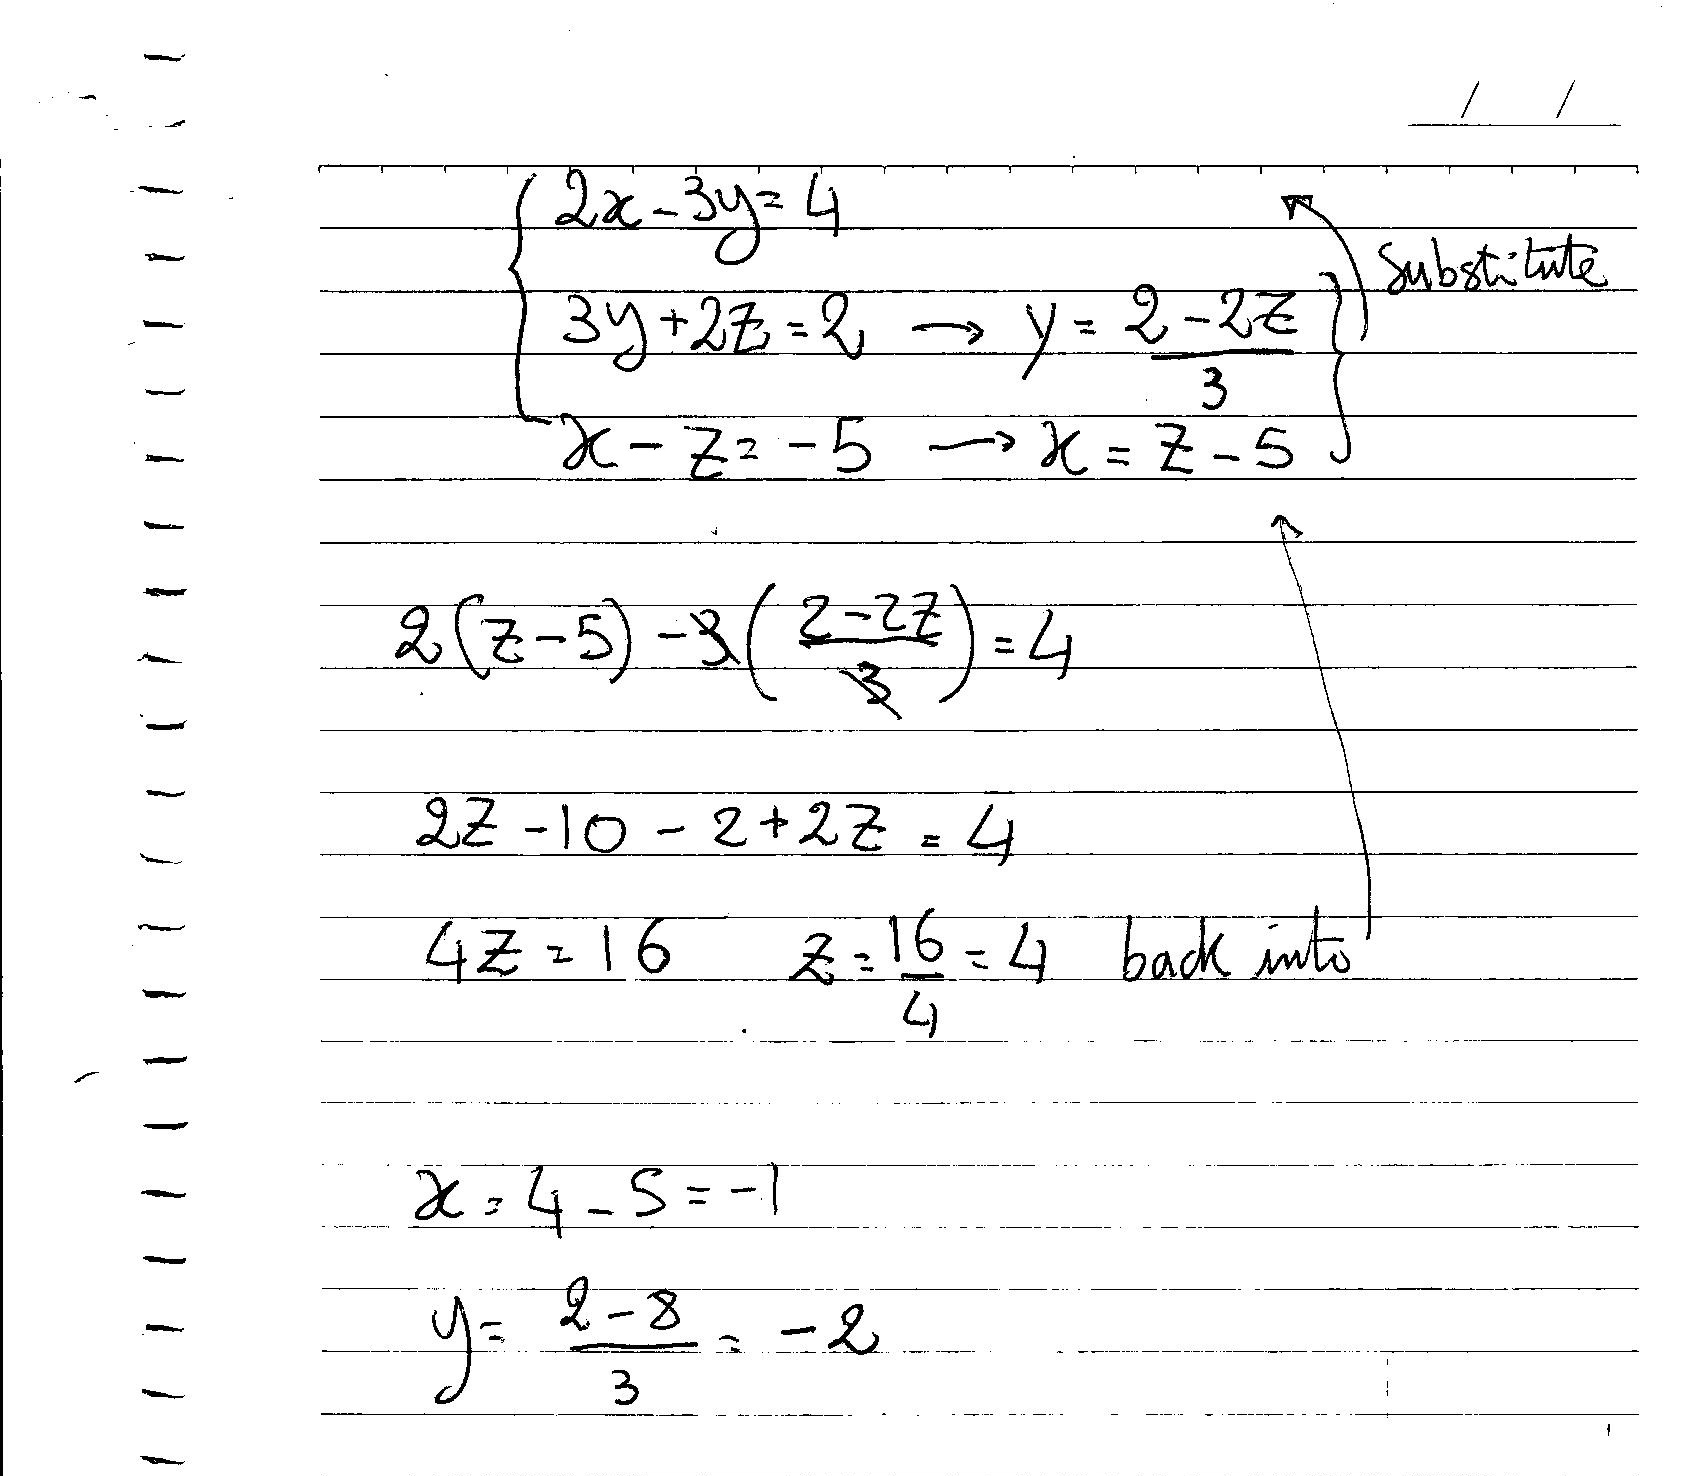 / /
2x - 3y = 4
Substitute
3y + 2z = 2 → y = (2 - 2z)/3
x - z = -5 → x = z - 5
2(z - 5) - 3((2 - 2z)/3) = 4
2z - 10 - 2 + 2z = 4
4z = 16 z = 16/4 = 4 back into
x = 4 - 5 = -1
y = (2 - 8)/3 = -2